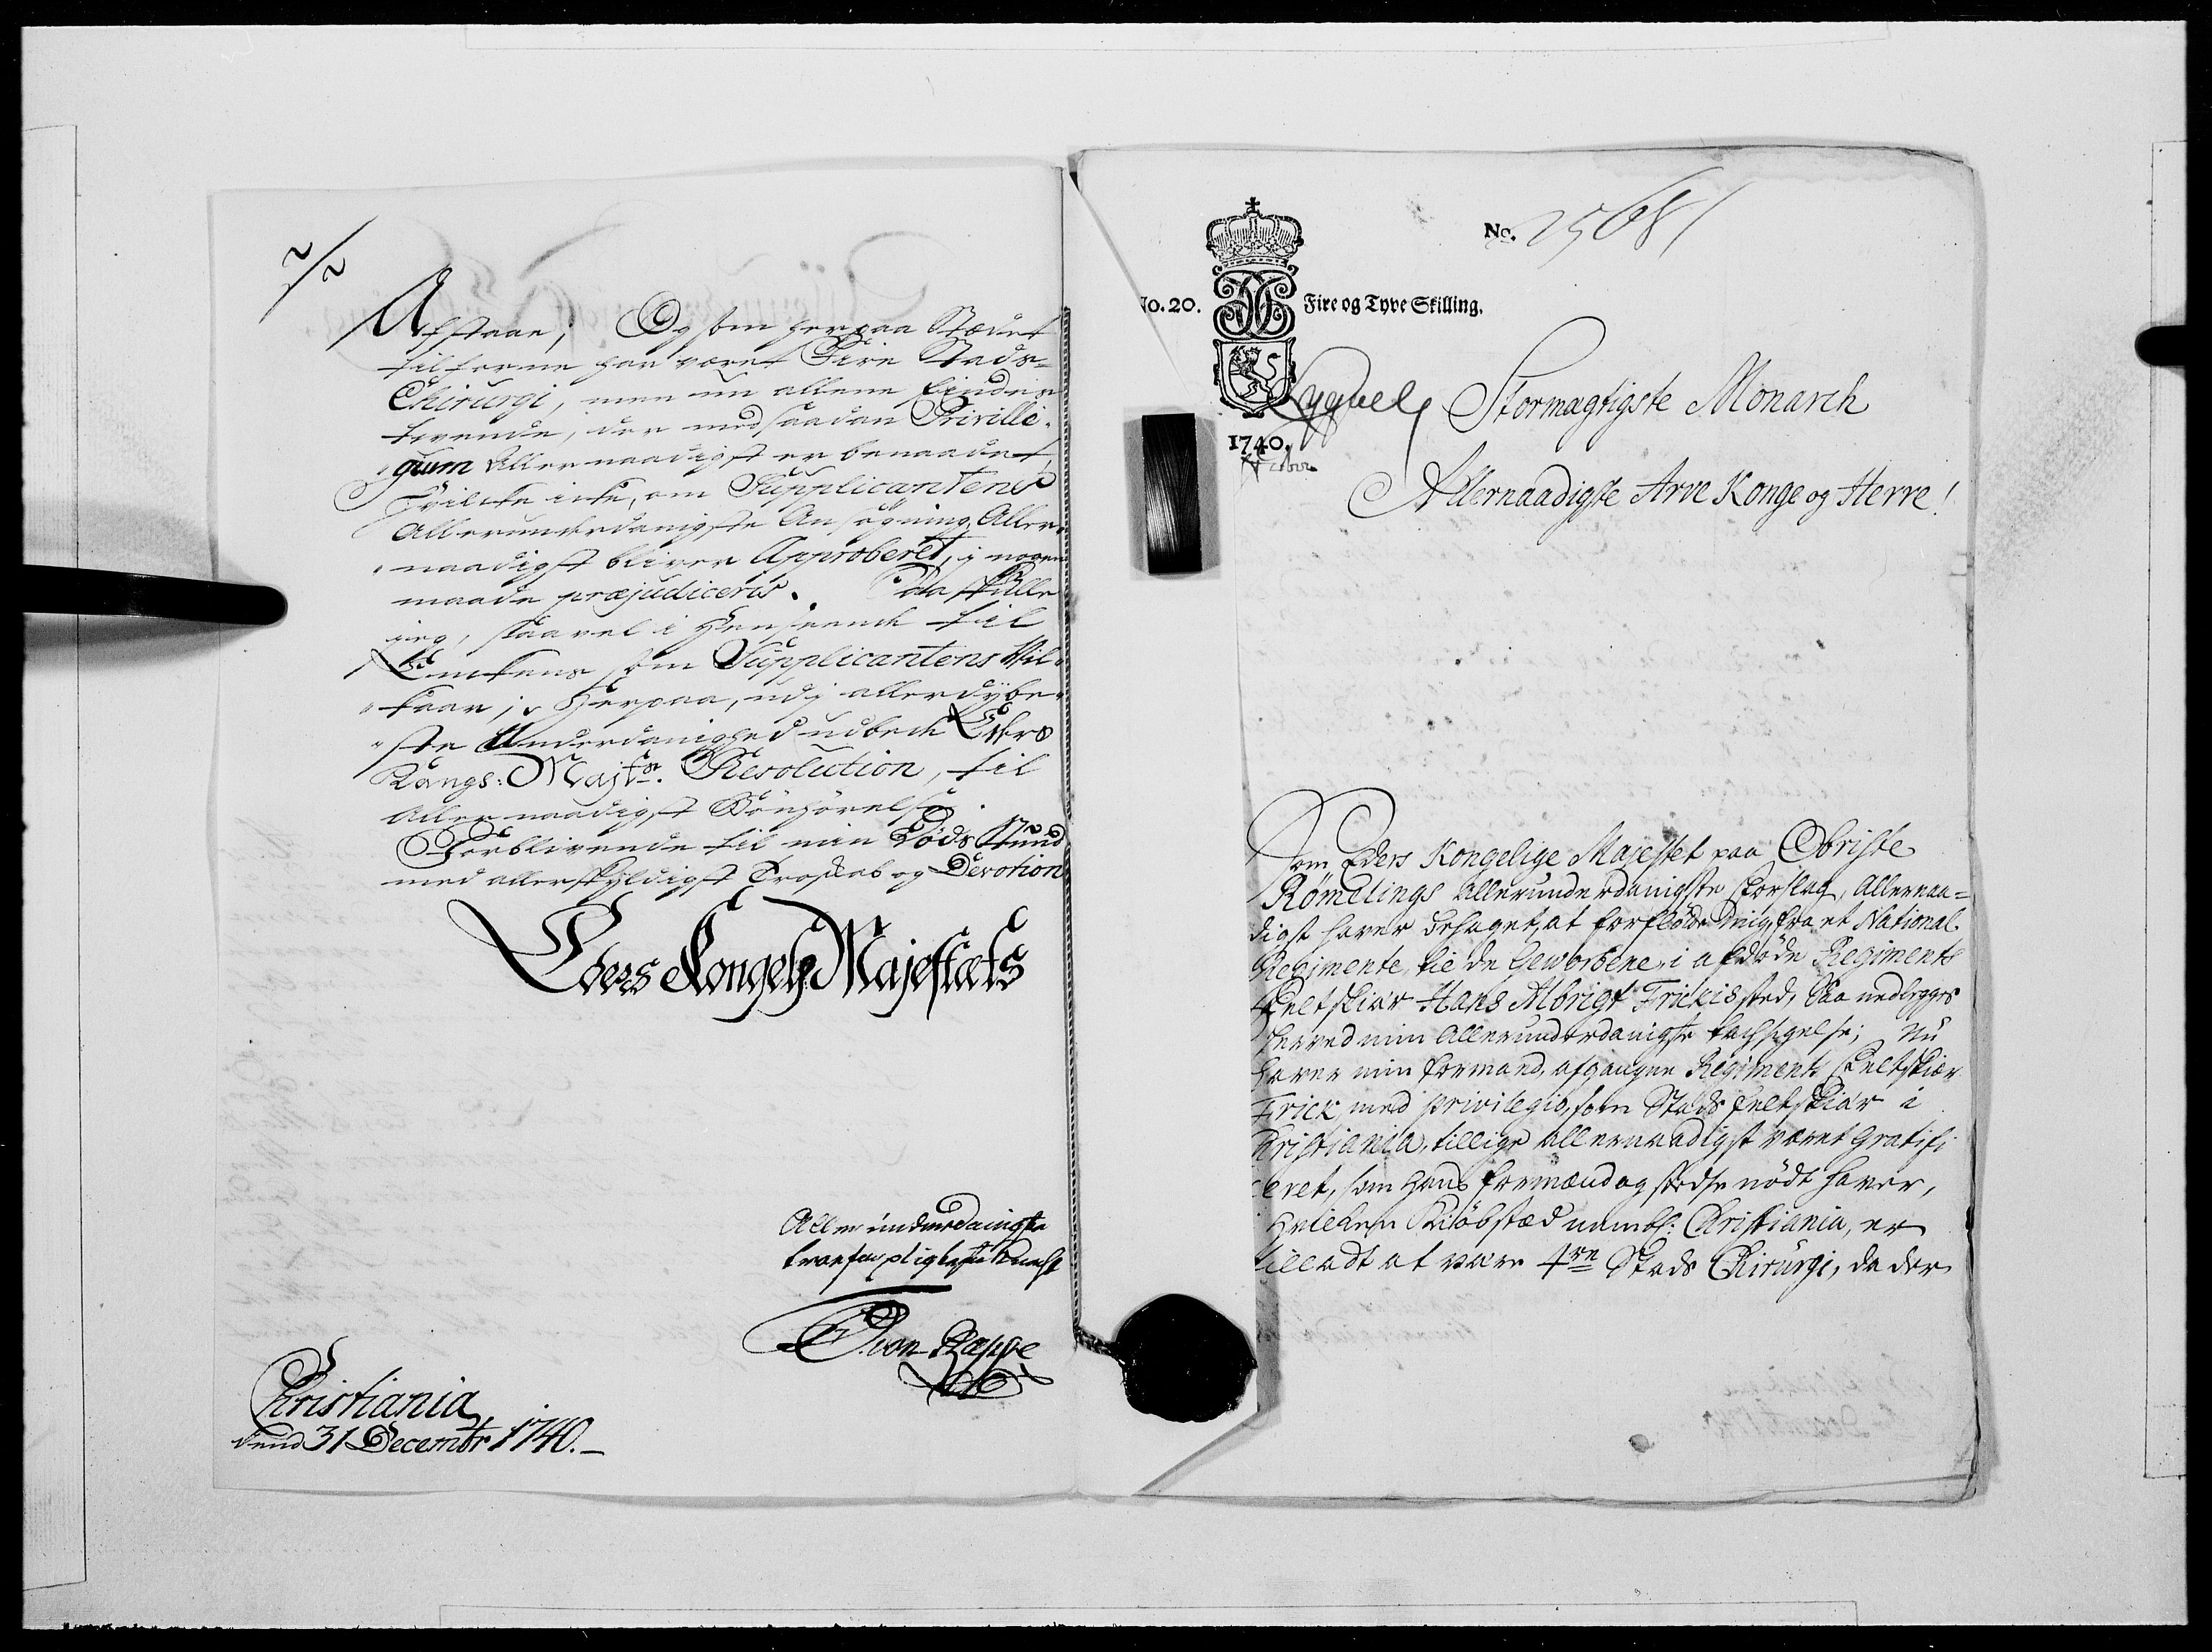 2/2
Afstaae; Og som herpaa Stædet
tilforne har været Fire Stads-
Chirurgi, men nu allene findes
trende, der med saadan Privile-
gium Allernaadigst er benaadet,
hvilke icke, om Supplicantens
Allerunderdanigste Ansøgning Aller-
naadigst bliver Approberet, i nogen
maade præjudiceris. Saa skulle
jeg, saavel i Henseende til
Enckens som Supplicantens Vil-
kaar, herpaa, udj allerdybe-
ste Underdanighed udbede Eders
Kongl: Majts. Resolution, til
Allernaadigst Bönhörelse.
Forblivende til min Döds Stund
med allerskyldigst Troskab og Devotion
Eders Kongel: Majestæts
Allerunderdanigste
troe pligtigste
von Rappe
Christiania
dend 31 Decembr 1740.
No. 25681
No. 20. Fire og Tyve Skilling.
1740.
Stormægtigste Monarch
Allernaadigste Arve Konge og Herre!
Som Eders Kongelige Majestet paa Obriste
Römelings Allerunderdanigste Forslag, Allernaa-
digst haver behaget, at forflötte mig, fra et National
Regimente, til de Gevorbene, i afdöde Regiments
Feltskiær Hans Albrigt Frickis sted, Saa nedlegges
herved min Allerunderdanigste tachsigelse; Nu
haver min formand, afgangne Regiments Feltskiær
Frick, med privilegio, som Stads Feltskiær i
Christiania, tillige allernaadigst været Gratifi
ceret, som hans formænd og stedse nödt haver,
i hvilken Kiöbstæd nembl: Christiania, er
tilladt at være 4re Stads Chirurgi, da der